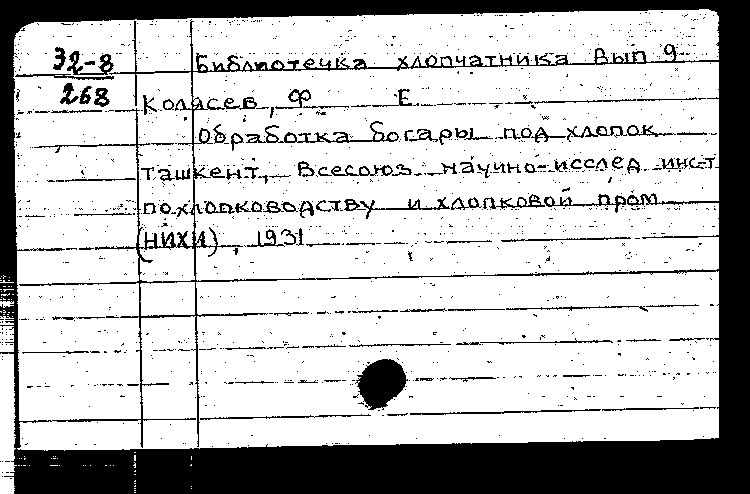 32-8 Библиотечка хлопчатника Вып 9
268 Колясев, Ф Е.
Обработка богары под хлопок
Ташкент, Всесоюз научно-исслед инс-т
по хлопководству и хлопковой пром
(НИХИ), 1931